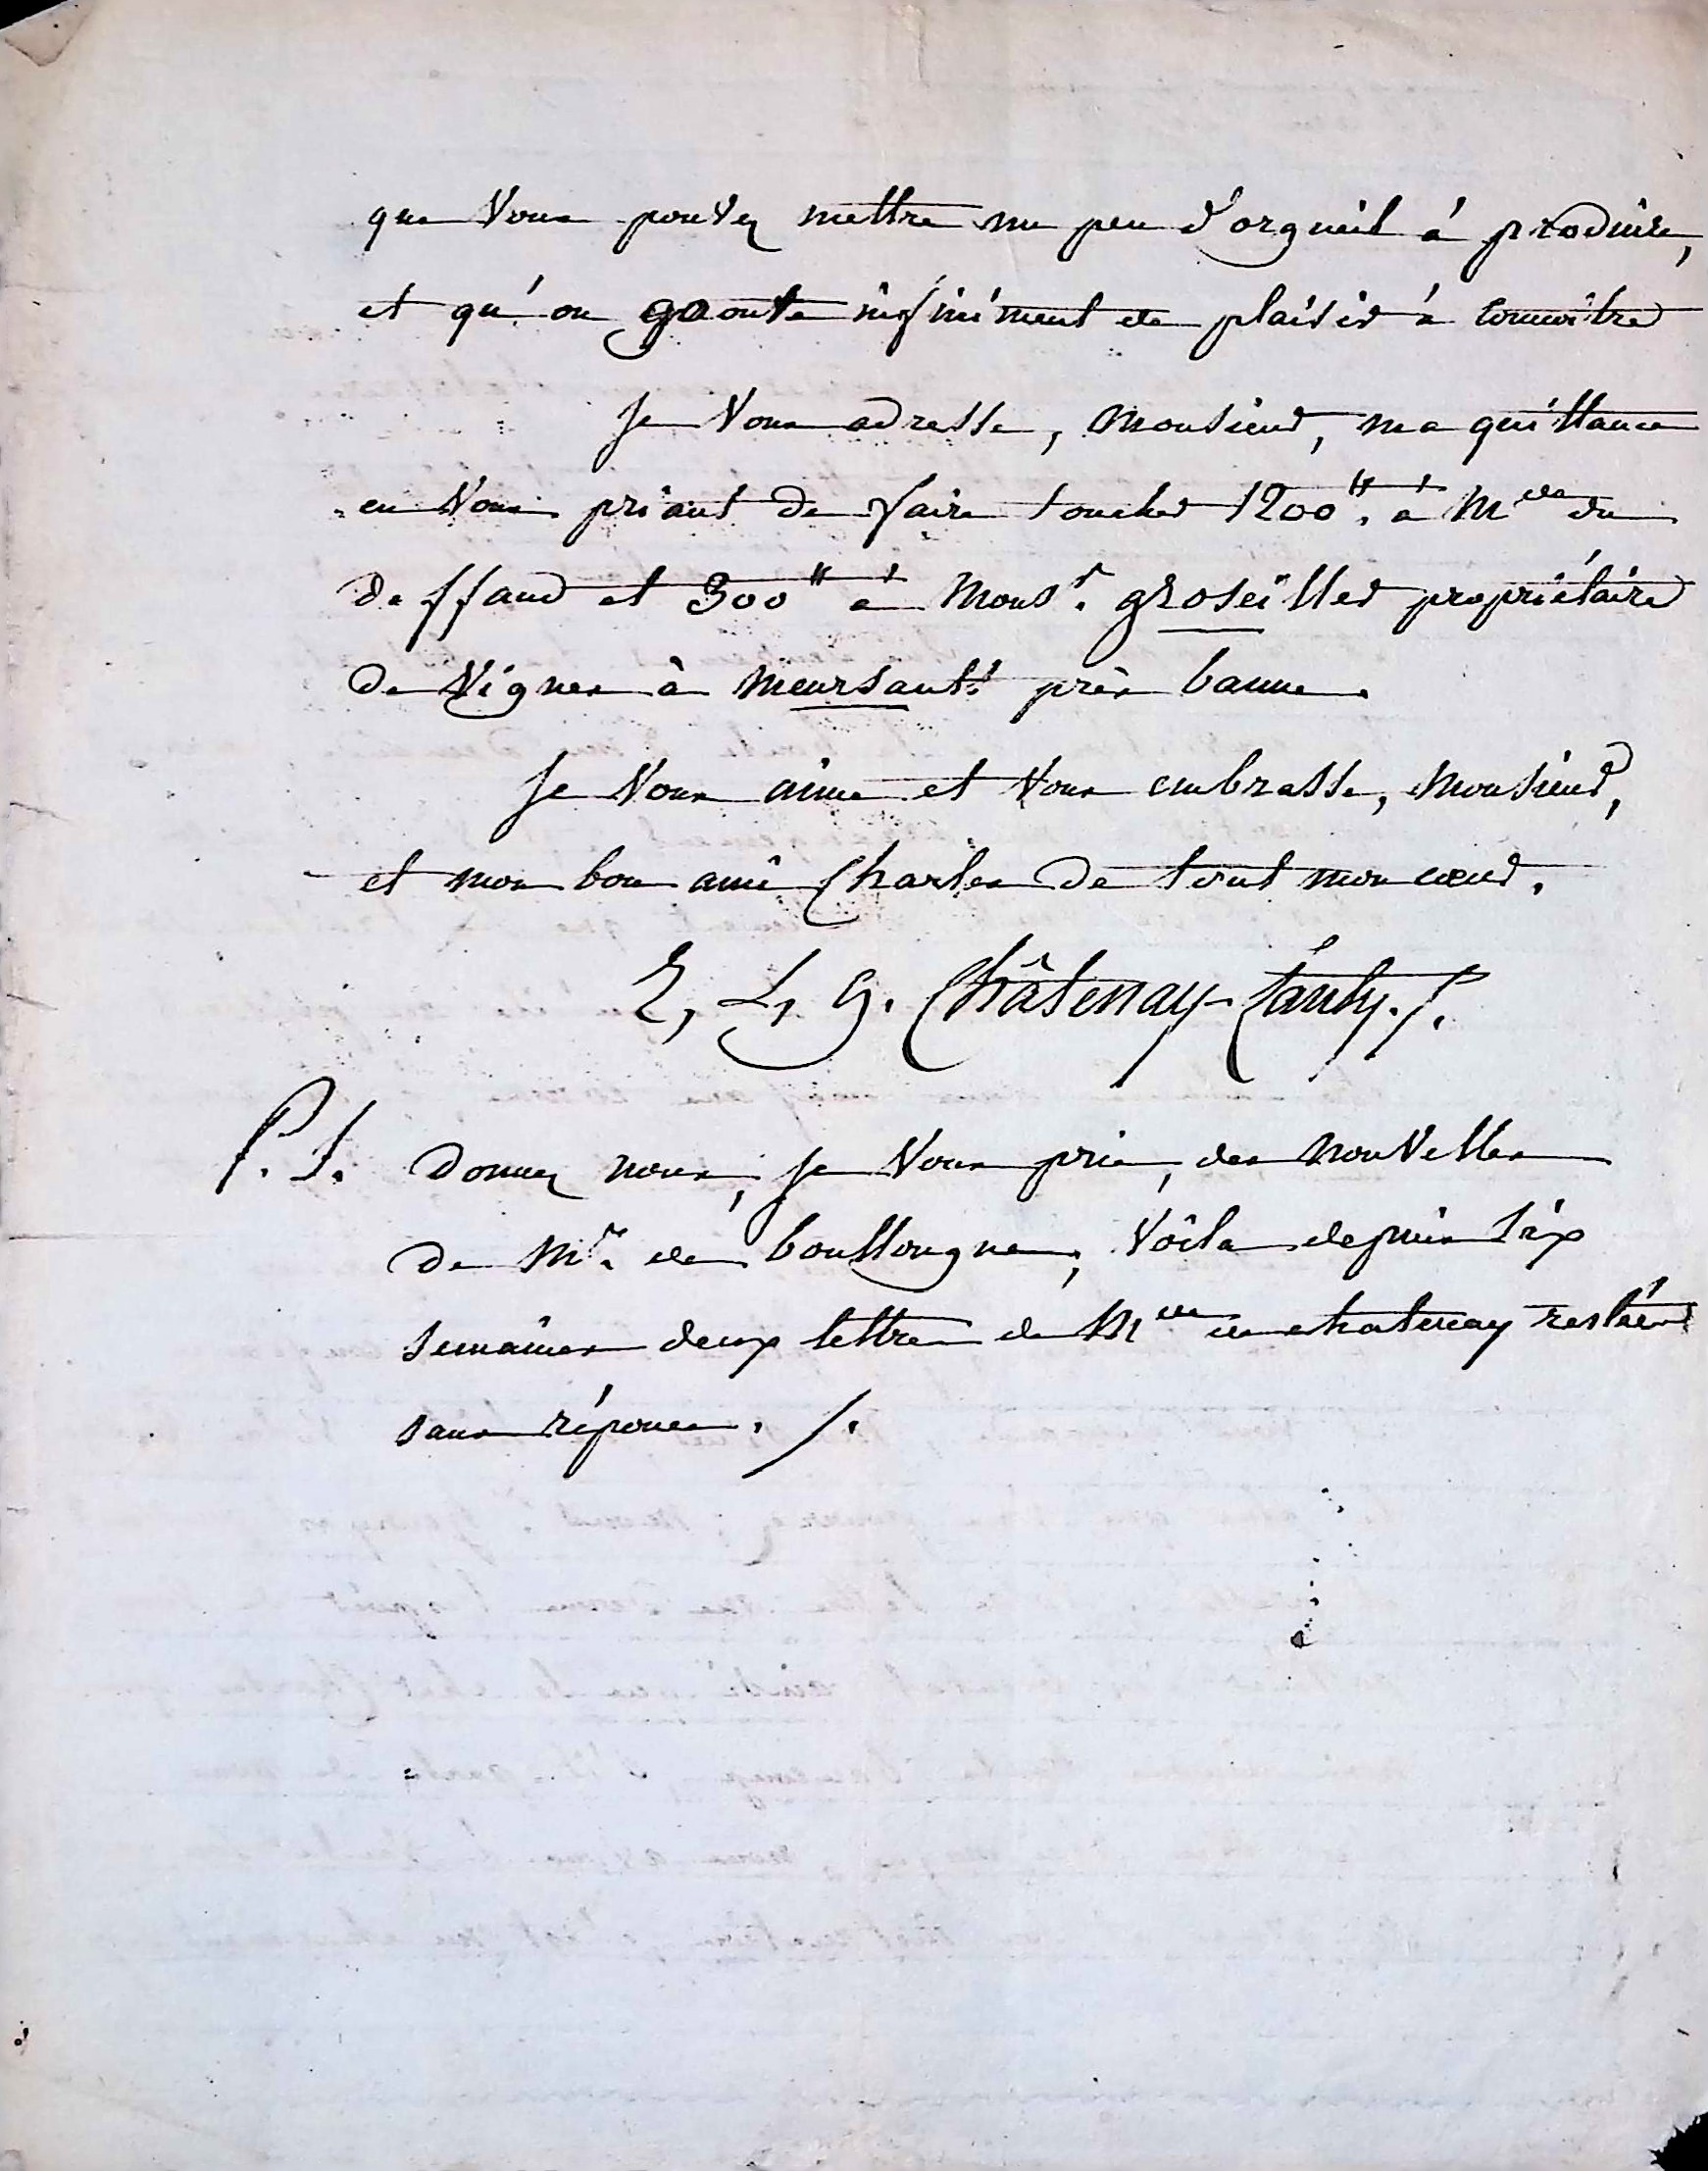 que vous pouvez mettre un peu d'orgueil à produire,
et qu'on gooute infiniment de plaisir à connoitre
je vous adresse, monsieur, ma quittance
en vous priant de faire toucher 1200ᵗᵗ. à Mde du
deffand et 300ᵗᵗ à Monsr. groseiller propriétaire
de vignes à meursault près baune.
je vous aime et vous embrasse, monsieur,
et mon bon ami Charles de tout mon cœur.
E, L, G. Châtenay-Lânty. /.
P. S. donnez nous, je vous prie, des nouvelles
de Mr. de boullongne, voila depuis six
semaines deux lettres de Mde de chatenay restées
sans réponses. /.